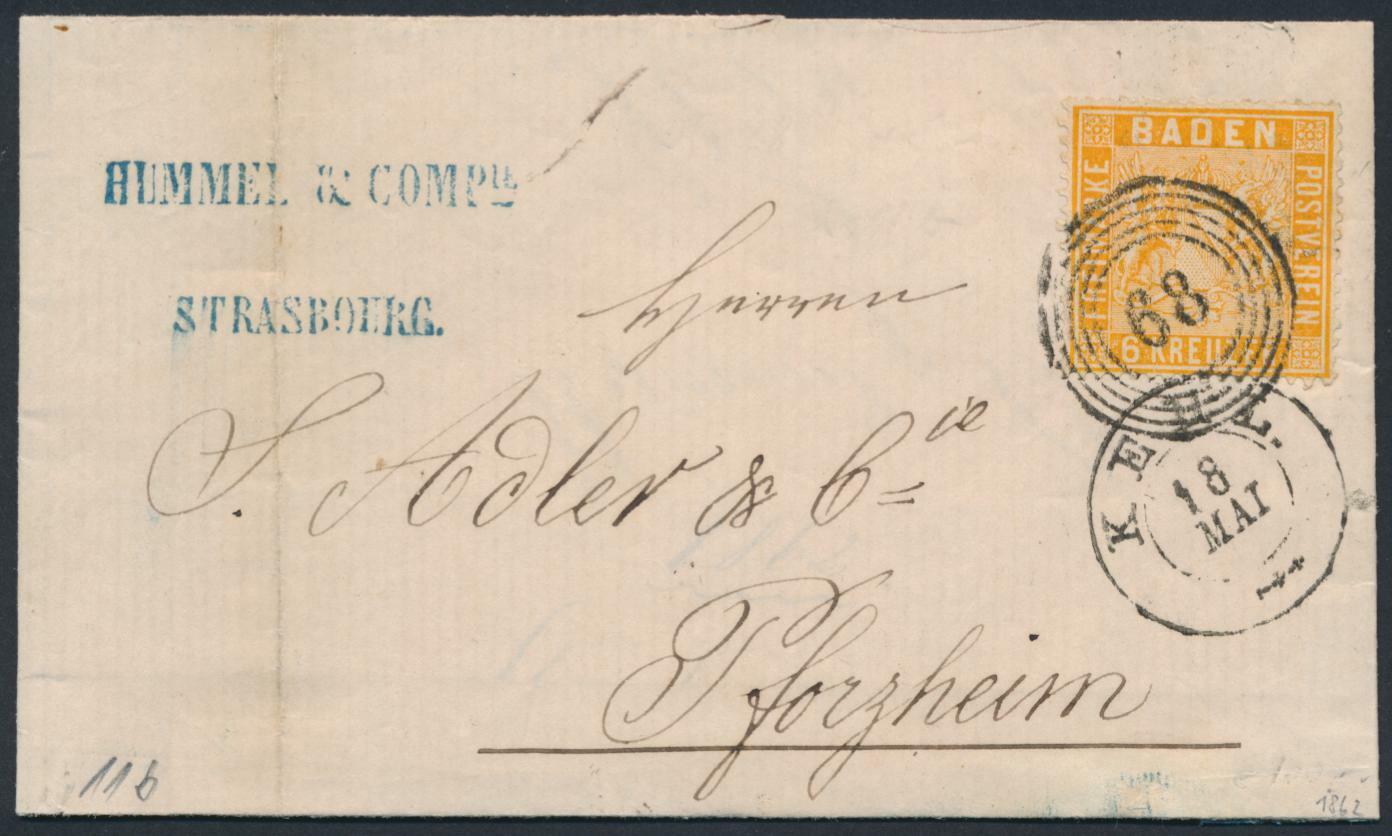 HUMMEL & COMPIE
STRASBOURG.
BADEN
FREIMARKE
POSTVEREIN
6 KREUZER
68
KEHL.
18
MAI
Herren
S. Adler & Cie
Pforzheim
11b
1862